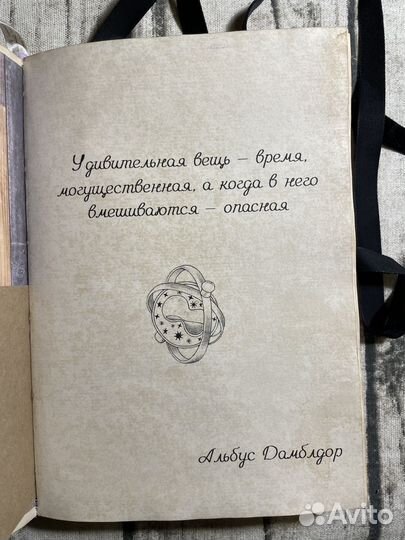 Удивительная вещь – время,
могущественная, а когда в него
вмешиваются – опасная
Альбус Дамблдор
Avito